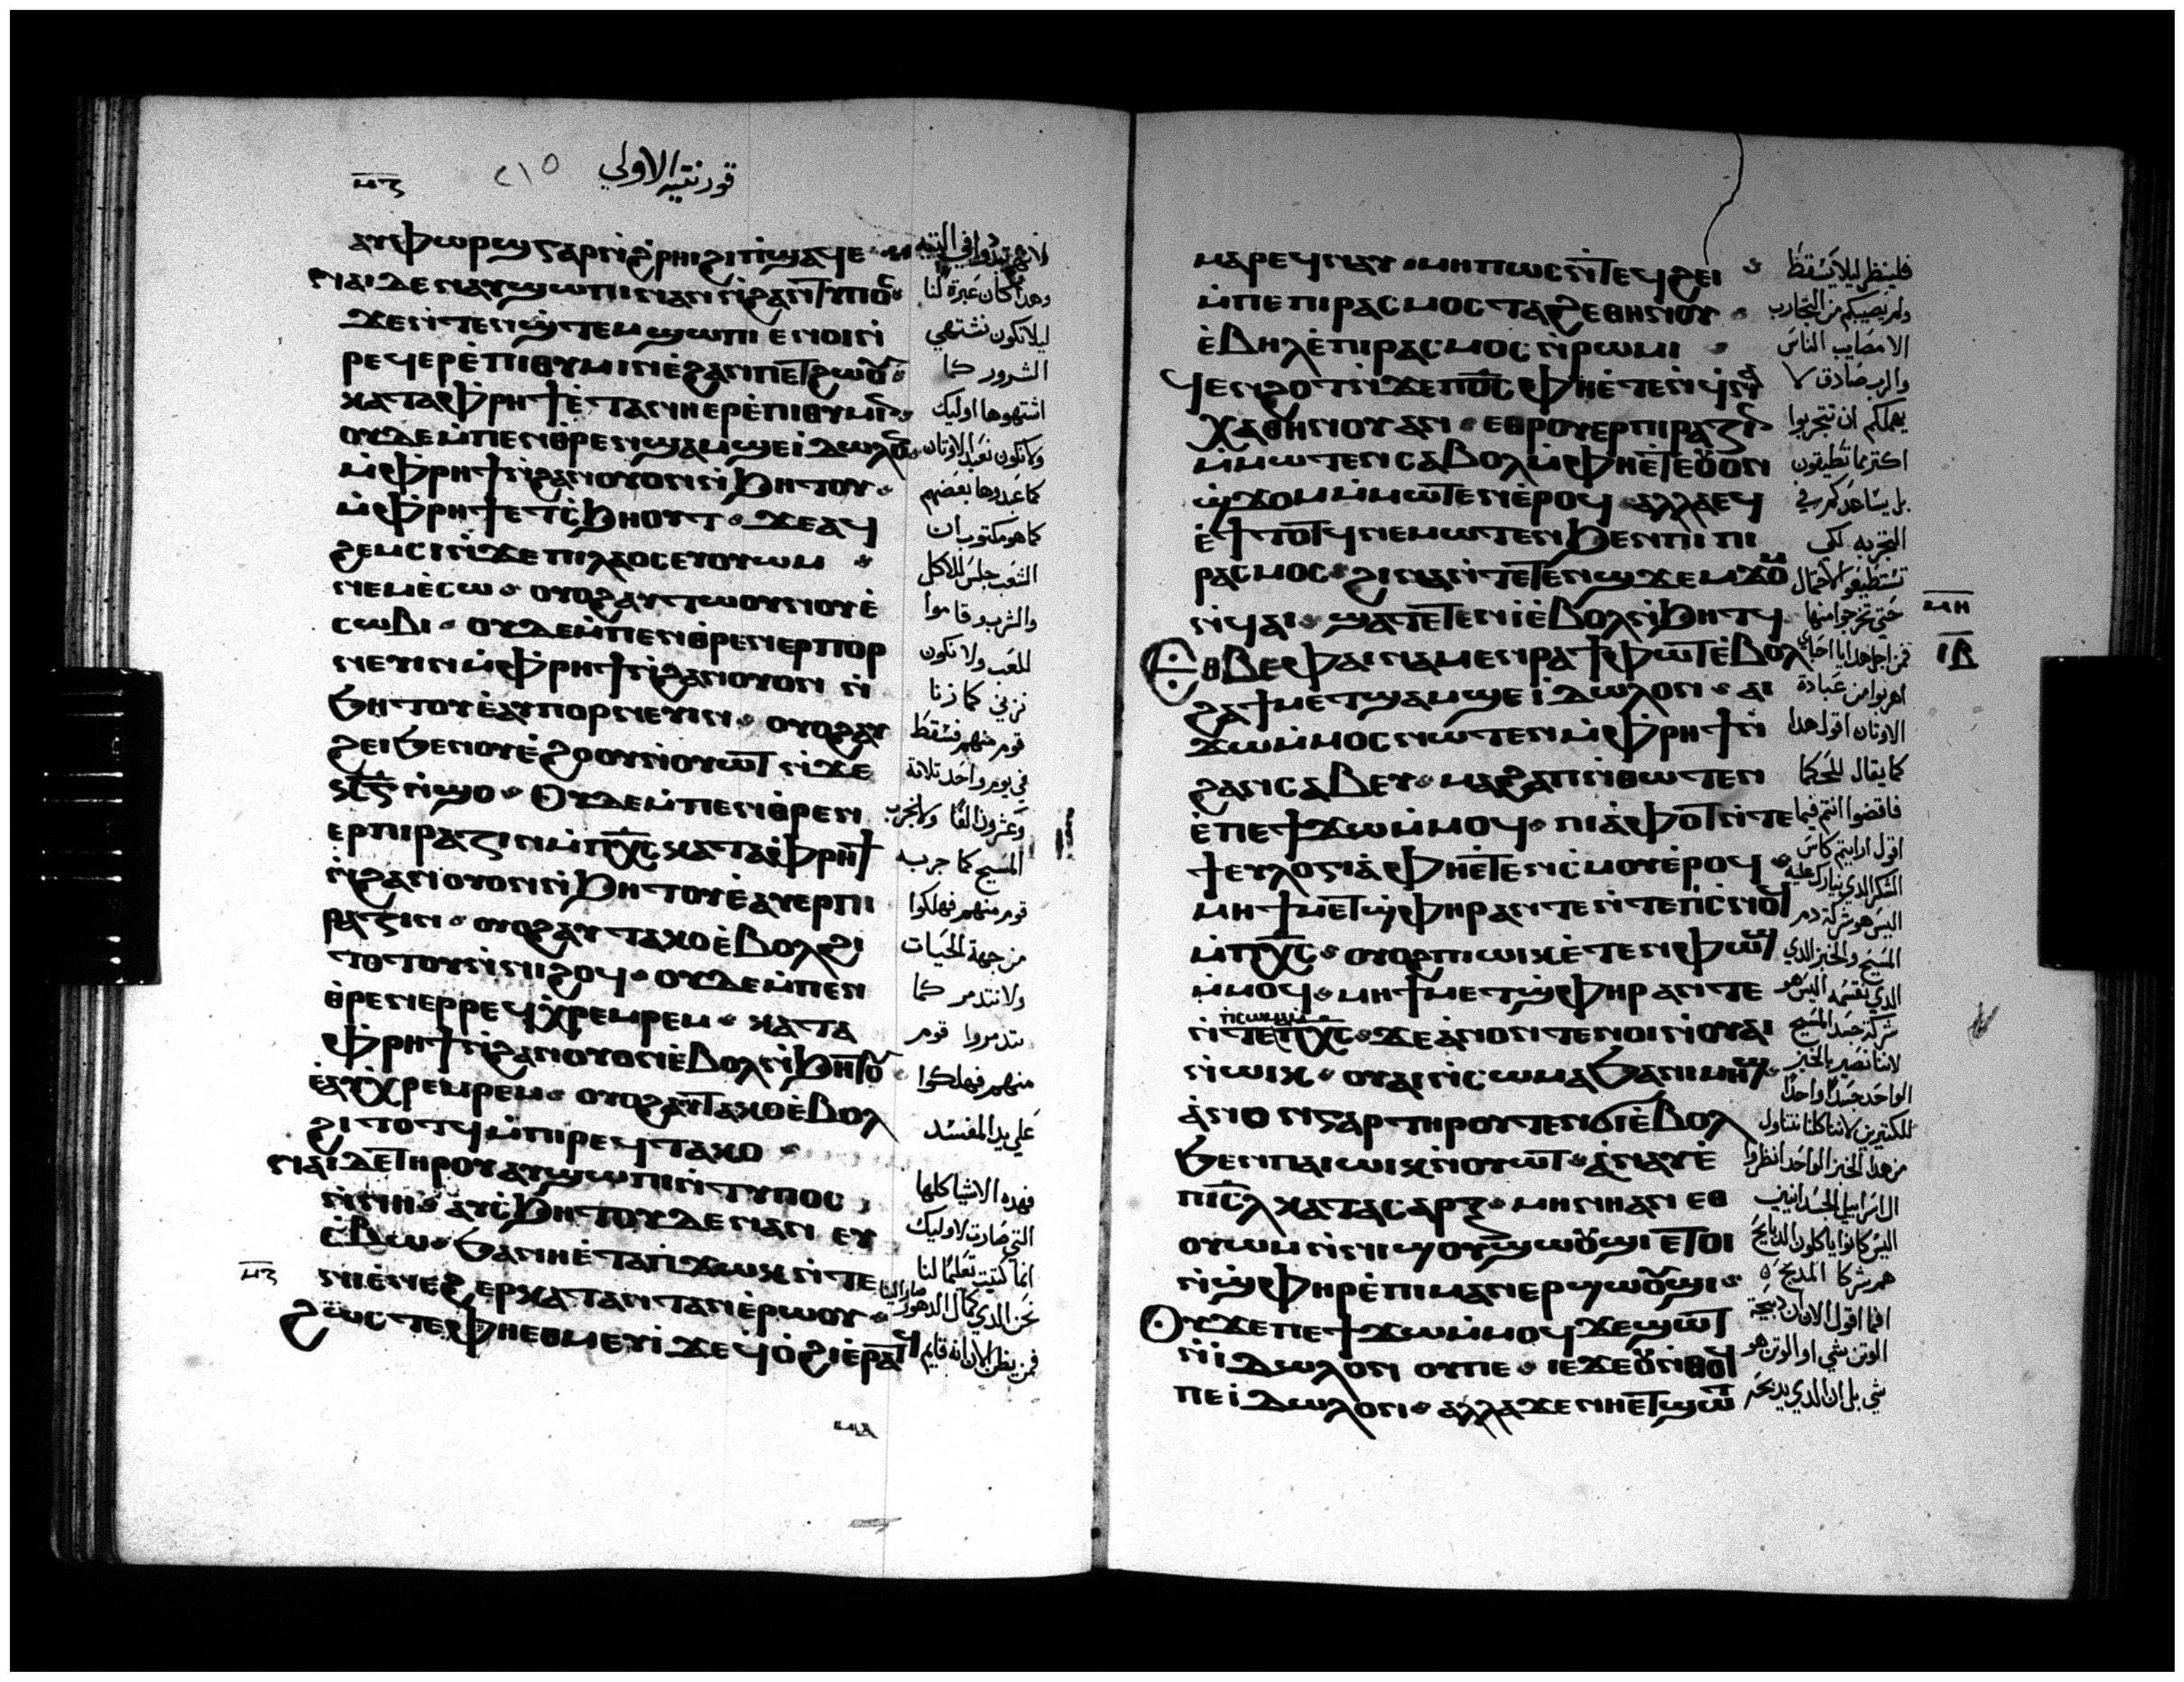 قورنتيه الاولي
ⲁⲩⲫⲱⲣϣ ⲅⲁⲣ ⲛ̀ϩ̀ⲣⲏⲓ ϩⲓ ⲡⲓϣⲁϥⲉ
ⲛⲁⲓ ⲇⲉ ⲛⲁⲩϣⲱⲡⲓ ⲛⲁⲛ ⲛ̀ϩⲁⲛⲧⲩⲡⲟⲥ
ϫⲉ ⲛ̀ⲧⲉⲛϣ̀ⲧⲉⲙϣⲱⲡⲓ ⲉⲛⲟⲓ ⲛ̀
ⲣⲉϥⲉⲣⲉ̀ⲡⲓⲑⲩⲙⲓⲛ ⲉ̀ϩⲁⲛⲡⲉⲧϩⲱⲟⲩ
ⲕⲁⲧⲁ ⲫ̀ⲣⲏϯ ⲉ̀ⲧⲁⲛⲏ ⲉⲣⲉ̀ⲡⲓⲑⲩⲙⲓⲛ
ⲟⲩⲇⲉ ⲙ̀ⲡⲉⲛⲑⲣⲉⲛϣⲁⲙϣⲉ ⲓ̀ⲇⲱⲗⲟⲛ
ⲙ̀ⲫ̀ⲣⲏϯ ⲛ̀ϩⲁⲛⲟⲩⲟⲛ ⲛ̀ϧⲏⲧⲟⲩ
ⲙ̀ⲫ̀ⲣⲏϯ ⲉⲧⲥ̀ϧⲏⲟⲩⲧ ϫⲉ ⲁϥ
ϩⲉⲙⲥⲓ ⲛ̀ϫⲉ ⲡⲓⲗⲁⲟⲥ ⲉⲩⲟⲩⲱⲙ
ⲛⲉⲙ ⲉ̀ⲥⲱ ⲟⲩⲟϩ ⲁⲩⲧⲱⲟⲩⲛⲟⲩ ⲉ̀
ⲥⲱⲃⲓ ⲟⲩⲇⲉ ⲙ̀ⲡⲉⲛⲑⲣⲉⲛⲉⲣⲡⲟⲣ
ⲛⲉⲩⲓⲛ ⲙ̀ⲫ̀ⲣⲏϯ ⲛ̀ϩⲁⲛⲟⲩⲟⲛ ⲛ̀
ϧⲏⲧⲟⲩ ⲉ̀ⲁⲩⲡⲟⲣⲛⲉⲩⲓⲛ ⲟⲩⲟϩ ⲁⲩ
ϩⲉⲓ ϧⲉⲛ ⲟⲩⲉ̀ϩⲟⲟⲩ ⲛ̀ⲟⲩⲱⲧ ⲛ̀ϫⲉ
ⲛ̀ϣⲟ ⲟⲩⲇⲉ ⲙ̀ⲡⲉⲛⲑⲣⲉⲛ
ⲉⲣⲡⲓⲣⲁⲍⲓⲛ ⲙ̀ⲡⲭ̅ⲥ̅ ⲕⲁⲧⲁ ⲫ̀ⲣⲏϯ
ⲛ̀ϩⲁⲛⲟⲩⲟⲛ ⲛ̀ϧⲏⲧⲟⲩ ⲉ̀ⲁⲩⲉⲣⲡⲓ
ⲣⲁⲍⲓⲛ ⲟⲩⲟϩ ⲁⲩⲧⲁⲕⲟ ⲉ̀ⲃⲟⲗ ϩⲓ
ⲧⲟⲧⲟⲩ ⲛ̀ⲛⲓϩⲟϥ ⲟⲩⲇⲉ ⲙ̀ⲡⲉⲛ
ⲑⲣⲉⲛⲉⲣⲣⲉϥⲭ̀ⲣⲉⲙⲣⲉⲙ ⲕⲁⲧⲁ
ⲫ̀ⲣⲏϯ ⲛ̀ϩⲁⲛⲟⲩⲟⲛ ⲉ̀ⲃⲟⲗ ⲛ̀ϧⲏⲧⲟⲩ
ⲉ̀ⲁⲩⲭ̀ⲣⲉⲙⲣⲉⲙ ⲟⲩⲟϩ ⲁⲩⲧⲁⲕⲟ ⲉ̀ⲃⲟⲗ
ϩⲓⲧⲟⲧϥ ⲙ̀ⲡⲓⲣⲉϥⲧⲁⲕⲟ
ⲛⲁⲓ ⲇⲉ ⲧⲏⲣⲟⲩ ⲁⲩϣⲱⲡⲓ ⲛ̀ⲧⲩⲡⲟⲥ
ⲛ̀ⲛⲏ ⲁⲩⲥ̀ϧⲏⲧⲟⲩ ⲇⲉ ⲛⲁⲛ ⲉⲩ
ⲥ̀ⲃⲱ ϧⲁ ⲛⲏ ⲉ̀ⲧⲁ ⲡ̀ϫⲱⲕ ⲛ̀ⲧⲉ
ⲛⲓⲉ̀ⲛⲉϩ ⲉⲣⲕⲁⲧⲁⲛⲧⲁⲛ ⲉ̀ⲣⲱⲟⲩ
ϩⲱⲥⲧⲉ ⲫⲏⲉⲑⲙⲉⲩⲓ ϫⲉ ϥ̀ⲟ̀ϩⲓ ⲉ̀ⲣⲁⲧϥ
وهدا كان عبرة لنا
ليلا نكون نشتهي
الشرور كما
اشتهوها اوليك
ولا نكون نعبد الاوتان
كما عبدوها بعضهم
كما هو مكتوب ان
الشعب جلس للاكل
والشرب وقاموا
للعب ولا نكون
نزني كما زنا
قوم منهم فسقط
في يوم واحد تلاتة
وعشرون الفا ولا نجرب
المسيح كما جرب
قوم منهم فهلكوا
من جهة الحيات
ولا نتدمر كما
تدمروا قوم
منهم فهلكوا
علي يد المفسد
فهده الاشيا كلها
التي صارت لاوليك
انما كتبت تعليما لنا
فمن يظن الان انه قايم
ⲙⲁⲣⲉϥⲛⲁⲩ ⲙⲏⲡⲱⲥ ⲛ̀ⲧⲉϥϩⲉⲓ
ⲙ̀ⲡⲉ ⲡⲓⲣⲁⲥⲙⲟⲥ ⲧⲁϩⲉ ⲑⲏⲛⲟⲩ
ⲉ̀ⲃⲏⲗ ⲉ̀ⲡⲓⲣⲁⲥⲙⲟⲥ ⲛ̀ⲣⲱⲙⲓ
ϥⲉⲛϩⲟⲧ ⲛ̀ϫⲉ ⲡⲟ̅ⲥ̅ ⲫⲏⲉ̀ⲧⲉⲛϥ̀ⲛⲁ
ⲭⲁ ⲑⲏⲛⲟⲩ ⲁⲛ ⲉⲑⲣⲟⲩⲉⲣⲡⲓⲣⲁⲍⲓⲛ
ⲙ̀ⲙⲱⲧⲉⲛ ⲥⲁⲃⲟⲗ ⲙ̀ⲫⲏⲉ̀ⲧⲉ ⲟⲩⲟⲛ
ϣ̀ϫⲟⲙ ⲙ̀ⲙⲱⲧⲉⲛ ⲉ̀ⲣⲟϥ ⲁⲗⲗⲁ ⲉϥ
ⲉ̀ϯⲧⲟⲧϥ ⲛⲉⲙⲱⲧⲉⲛ ϧⲉⲛ ⲡⲓⲡⲓ
ⲣⲁⲥⲙⲟⲥ ϩⲓⲛⲁ ⲛ̀ⲧⲉⲧⲉⲛϣϫⲉⲙϫⲟⲙ
ⲛ̀ϥⲁⲓ ϣⲁⲧⲉⲧⲉⲛⲓ̀ ⲉ̀ⲃⲟⲗ ⲛ̀ϧⲏⲧϥ
Ⲉⲑⲃⲉ ⲫⲁⲓ ⲛⲁⲙⲉⲛⲣⲁϯ ⲫⲱⲧ ⲉ̀ⲃⲟⲗ
ϩⲁ ϯⲙⲉⲧϣⲁⲙϣⲉ ⲓ̀ⲇⲱⲗⲟⲛ ⲁⲓ
ϫⲱ ⲙ̀ⲙⲟⲥ ⲛⲱⲧⲉⲛ ⲙ̀ⲫ̀ⲣⲏϯ ⲛ̀
ϩⲁⲛⲥⲁⲃⲉⲩ ⲙⲁϩⲁⲡ ⲛ̀ⲑⲱⲧⲉⲛ
ⲉ̀ⲡⲉϯϫⲱ ⲙ̀ⲙⲟϥ ⲡⲓⲁ̀ⲫⲟⲧ ⲛ̀ⲧⲉ
ϯⲉⲩⲗⲟⲅⲓⲁ̀ ⲫⲏⲉ̀ⲧⲉⲛⲥ̀ⲙⲟⲩ ⲉ̀ⲣⲟϥ
ⲙⲏ ϯⲙⲉⲧϣ̀ⲫⲏⲣ ⲁⲛ ⲧⲉ ⲛ̀ⲧⲉ ⲡ̀ⲥ̀ⲛⲟϥ
ⲙ̀ⲡⲭ̅ⲥ̅ ⲟⲩⲟϩ ⲡⲓⲱⲓⲕ ⲉ̀ⲧⲉⲛⲫⲱϣ
ⲙ̀ⲙⲟϥ ⲙⲏ ϯⲙⲉⲧϣ̀ⲫⲏⲣ ⲁⲛ ⲧⲉ
ⲛ̀ⲧⲉ ⲡⲭ̅ⲥ̅ ϫⲉ ⲁ̀ⲛⲟⲛ ⲧⲉⲛⲟⲓ ⲛ̀ⲟⲩⲁⲓ
ⲛ̀ⲱⲓⲕ ⲟⲩⲁⲓ ⲛ̀ⲥⲱⲙⲁ ϧⲁ ⲛⲓⲙⲏϣ
ⲁ̀ⲛⲟⲛ ⲅⲁⲣ ⲧⲏⲣⲟⲩ ⲧⲉⲛϭⲓ ⲉ̀ⲃⲟⲗ
ϧⲉⲛ ⲡⲁⲓⲱⲓⲕ ⲛ̀ⲟⲩⲱⲧ ⲁ̀ⲛⲁⲩ ⲉ̀
ⲡⲓⲥ̅ⲗ̅ ⲕⲁⲧⲁ ⲥⲁⲣⲝ ⲙⲏ ⲛⲏ ⲁⲛ ⲉⲑ
ⲟⲩⲱⲙ ⲛ̀ⲛⲓϣⲟⲩϣⲱⲟⲩϣⲓ ⲉⲧⲟⲓ
ⲛ̀ϣ̀ⲫⲏⲣ ⲉ̀ⲡⲓⲙⲁⲛⲉⲣϣⲱⲟⲩϣⲓ
Ⲟⲩ ϫⲉ ⲡⲉϯϫⲱ ⲙ̀ⲙⲟϥ ϫⲉ ϣⲱⲧ
ⲛ̀ⲓ̀ⲇⲱⲗⲟⲛ ⲟⲩ ⲡⲉ ⲓⲉ ϫⲉ ⲟⲩⲛ̀ⲑⲟϥ
ⲡⲉ ⲓ̀ⲇⲱⲗⲟⲛ ⲁⲗⲗⲁ ϫⲉ ⲛⲏⲉ̀ⲧϣⲱⲧ
فلينظر ليلا يسقط
ولم يصيبكم من التجارب
الا مصايب الناس
والرب صادق لا
يهملكم ان تتجربوا
اكتر مما تطيقون
بل يساعدكم في
التجربه لكي
تستطيعوا الاحتمال
حتي تخرجوا منها
فمن اجل هدا يا احباي
اهربوا من عبادة
الاوتان اقول هدا
كما يقال للحكما
فاقضوا انتم فيما
اقول ارايتم كاس
الشكر الدي نبارك عليه
اليس هو شركة دم
المسيح والخبز الدي
الدي نقسمه اليس هو
شركة جسد المسيح
لاننا نصير بالخبز
الواحد جسدا واحدا
للكتيرين لاننا كلنا نتناول
من هدا الخبز الواحد انظروا
ال اسراييل الجسدانيين
اليس كانوا ياكلون الدبايح
هم شركا المدبح
افما اقول الان ان دبيحة
الوتن شي او الوتن هو
شي بل ان الدي يدبحه